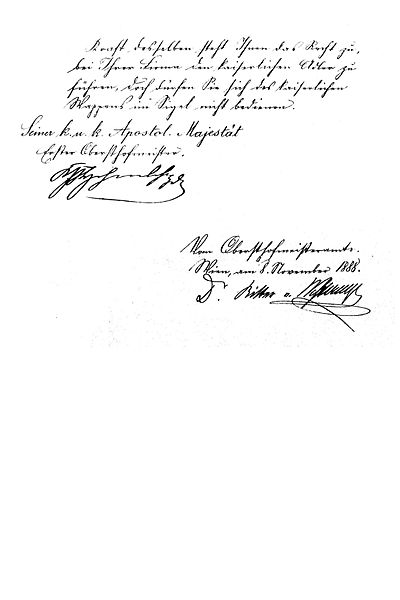 Kraft desselben steht Ihnen das Recht zu,
bei Ihrer Firma den kaiserlichen Adler zu
führen, doch dürfen Sie sich des kaiserlichen
Wappens im Sigel nicht bedienen.
Seiner k. u. k. Apostol. Majestät
Erster Obersthofmeister.
Vom Obersthofmeisteramte.
Wien, am 8. November 1888.
Dr. Ritter v.